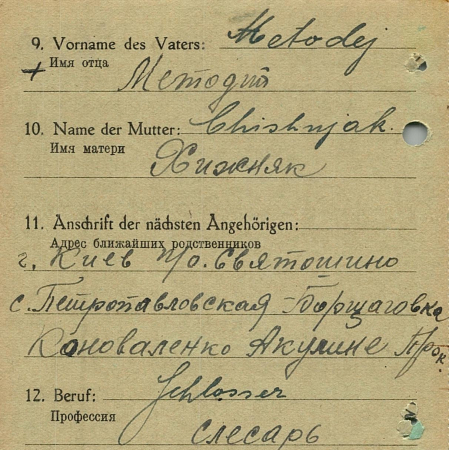 9. Vorname des Vaters: Metodej
Имя отца
Методий
10. Name der Mutter: Chishnjak.
Имя матери
Хижняк
11. Anschrift der nächsten Angehörigen:
Адрес ближайших родственников
г. Киев п/о. Святошино
с. Петропавловская-Борщаговка
Коноваленко Акулине Прок.
12. Beruf: Schlosser
Профессия
слесарь